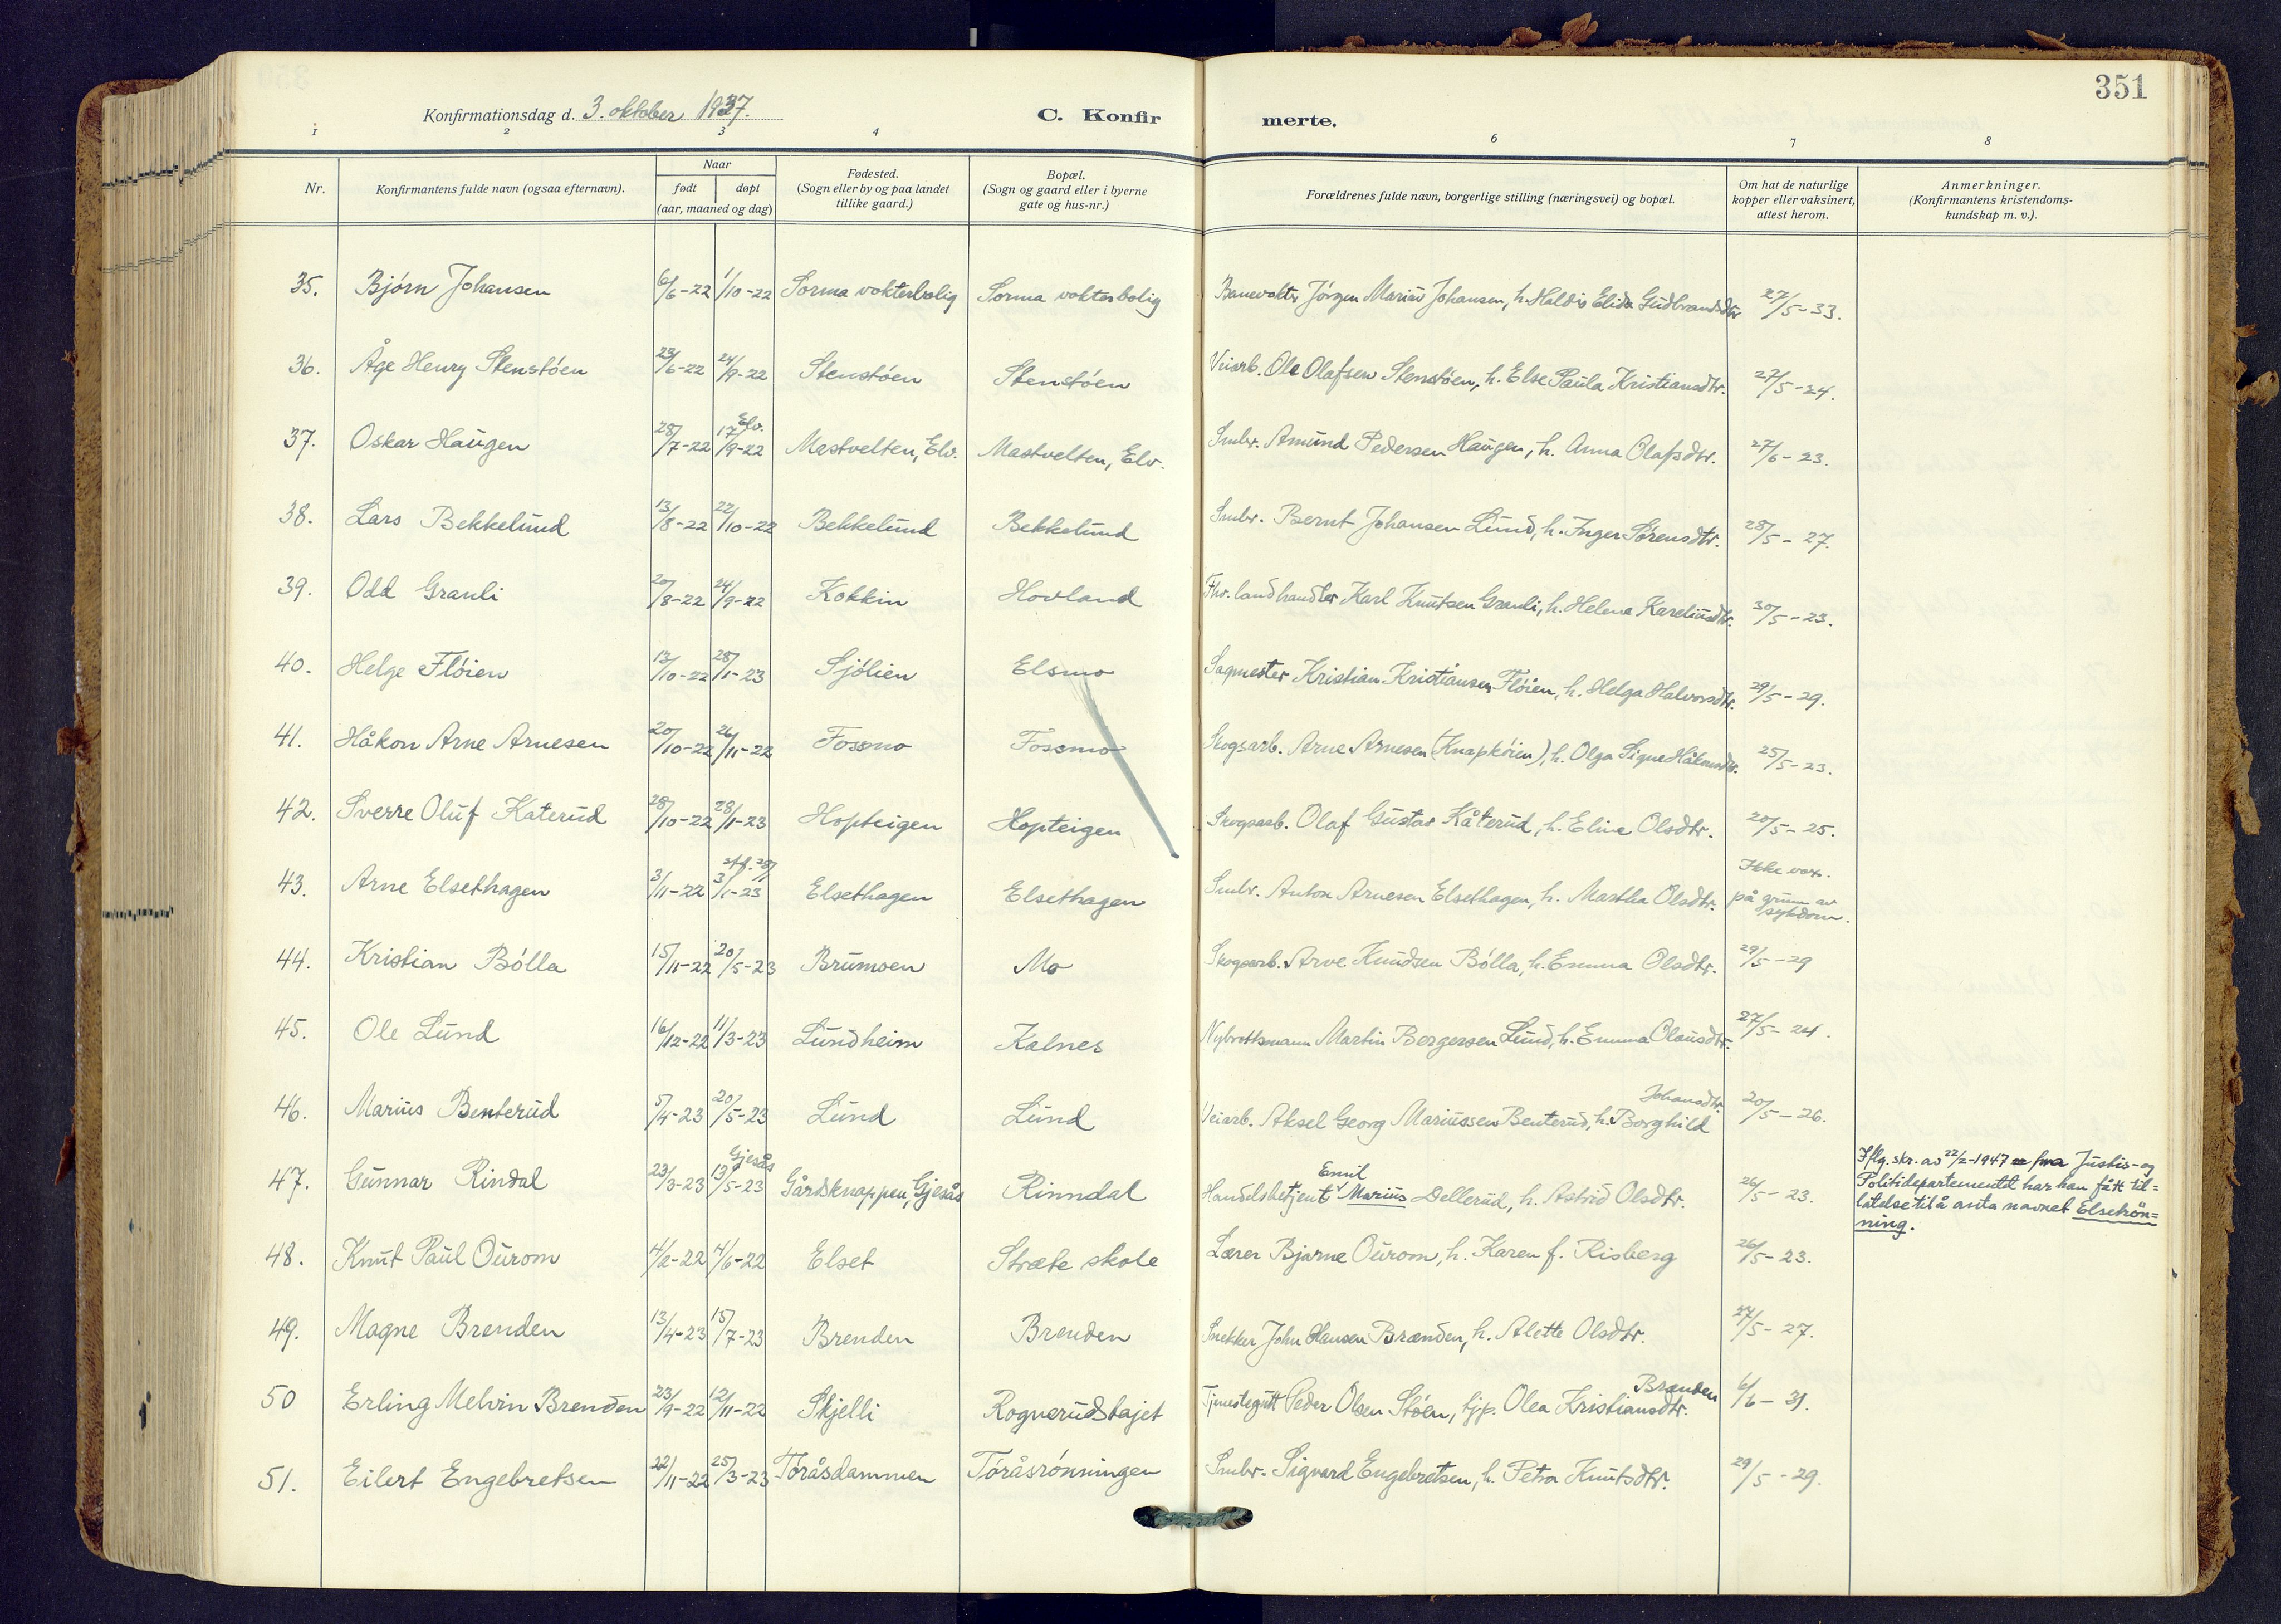 351
Konfirmationsdag d. 3. oktober 1937.
C. Konfirmerte.
1 2 3 4 6 7 8
Nr.
Konfirmantens fulde navn (ogsaa efternavn).
Naar
født døpt
(aar, maaned og dag)
Fødested.
(Sogn eller by og paa landet
tillike gaard.)
Bopæl.
(Sogn og gaard eller i byerne
gate og hus-nr.)
Forældrenes fulde navn, borgerlige stilling (næringsvei) og bopæl.
Om hat de naturlige
kopper eller vaksinert,
attest herom.
Anmerkninger.
(Konfirmantens kristendoms-
kundskap m. v.).
35. Bjørn Johansen 6/6-22 1/10-22 Sorma vokterbolig Sorma vokterbolig Banevokter Jørgen Marius Johansen, h. Haldis Elida Gudbrandsdtr 27/5-33.
36. Åge Henry Stenstøen 23/6-22 24/9-22 Stenstøen Stenstøen Veiarb. Ole Olafsen Stenstøen, h. Else Paula Kristiansdtr. 27/5-24.
37. Oskar Haugen 28/7-22 Elv. 17/9-22 Mastvelten, Elv. Mastvelten, Elv. Smbr. Amund Pedersen Haugen, h. Anna Olafsdtr. 27/6-23.
38. Lars Bekkelund 13/8-22 22/10-22 Bekkelund Bekkelund Smbr. Bernt Johansen Lund, h. Inger Sørensdtr. 28/5-27.
39. Odd Granli 20/8-22 24/9-22 Kokkin Hovland Fhv. landhandler Karl Knutsen Granli, h. Helene Kareliusdtr. 30/5-23.
40. Helge Fløien 13/10-22 28/1-23 Sjølien Elsmo Sagmester Kristian Kristiansen Fløien, h. Helga Halvorsdtr. 29/5-29.
41. Håkon Arne Arnesen 20/10-22 26/11-22 Fossmo Fossmo Skogsarb. Arne Arnesen (Knapkøien), h. Olga Signe Håkonsdtr. 25/5-23.
42. Sverre Oluf Katerud 28/10-22 28/1-23 Hopteigen Hopteigen Skogsarb. Olaf Gustav Kåterud, h. Eline Olsdtr. 20/5-25.
43. Arne Elsethagen 3/11-22 3/1-23 Elsethagen Elsethagen Smbr. Anton Arnesen Elsethagen, h. Martha Olsdtr. Ikke vax.
på grunn av
sykdom.
44. Kristian Bølla 15/11-22 20/5-23 Brumoen Mo Skogsarb. Arve Knudsen Bølla, h. Emma Olsdtr. 29/5-29
45. Ole Lund 16/12-22 11/3-23 Lundheim Kalnes Nybrottsmann Martin Bergersen Lund, h. Emma Olausdtr. 27/5-24.
46. Marius Benterud 5/4-23 20/5-23 Lund Lund Veiarb. Aksel Georg Mariussen Benterud, h. Borghild Johansdtr. 20/5-26.
47. Gunnar Rindal 23/3-23 Gjesås 13/5-23 Gårdsknappen, Gjesås Rinndal Handelsbetjent Emil Marius Dellerud, h. Astrid Olsdtr. 26/5-23.
Iflg. skr. av 22/2-1947 fra Justis- og
Politidepartementet har han fått til=
latelse til å anta navnet Elsetrøn=
ning.
48. Knut Paul Ourom 4/2-22 4/6-22 Elset Stræte skole Lærer Bjarne Ourom, h. Karen f. Risberg 26/5-23.
49. Magne Brenden 13/4-23 15/7-23 Brenden Brenden Snekker John Hansen Brænden, h. Alette Olsdtr. 27/5-27.
50 Erling Melvin Brenden 23/9-22 12/11-22 Skjelli Rognerudstajet Tjenestegutt Peder Olsen Støen, tjp. Olea Kristiansdtr. Brænden 6/6-31.
51. Eilert Engebretsen 22/11-22 25/3-23 Tøråsdammen Tøråsrønningen Smbr. Sigvard Engebretsen, h. Petra Knutsdtr. 29/5-29.